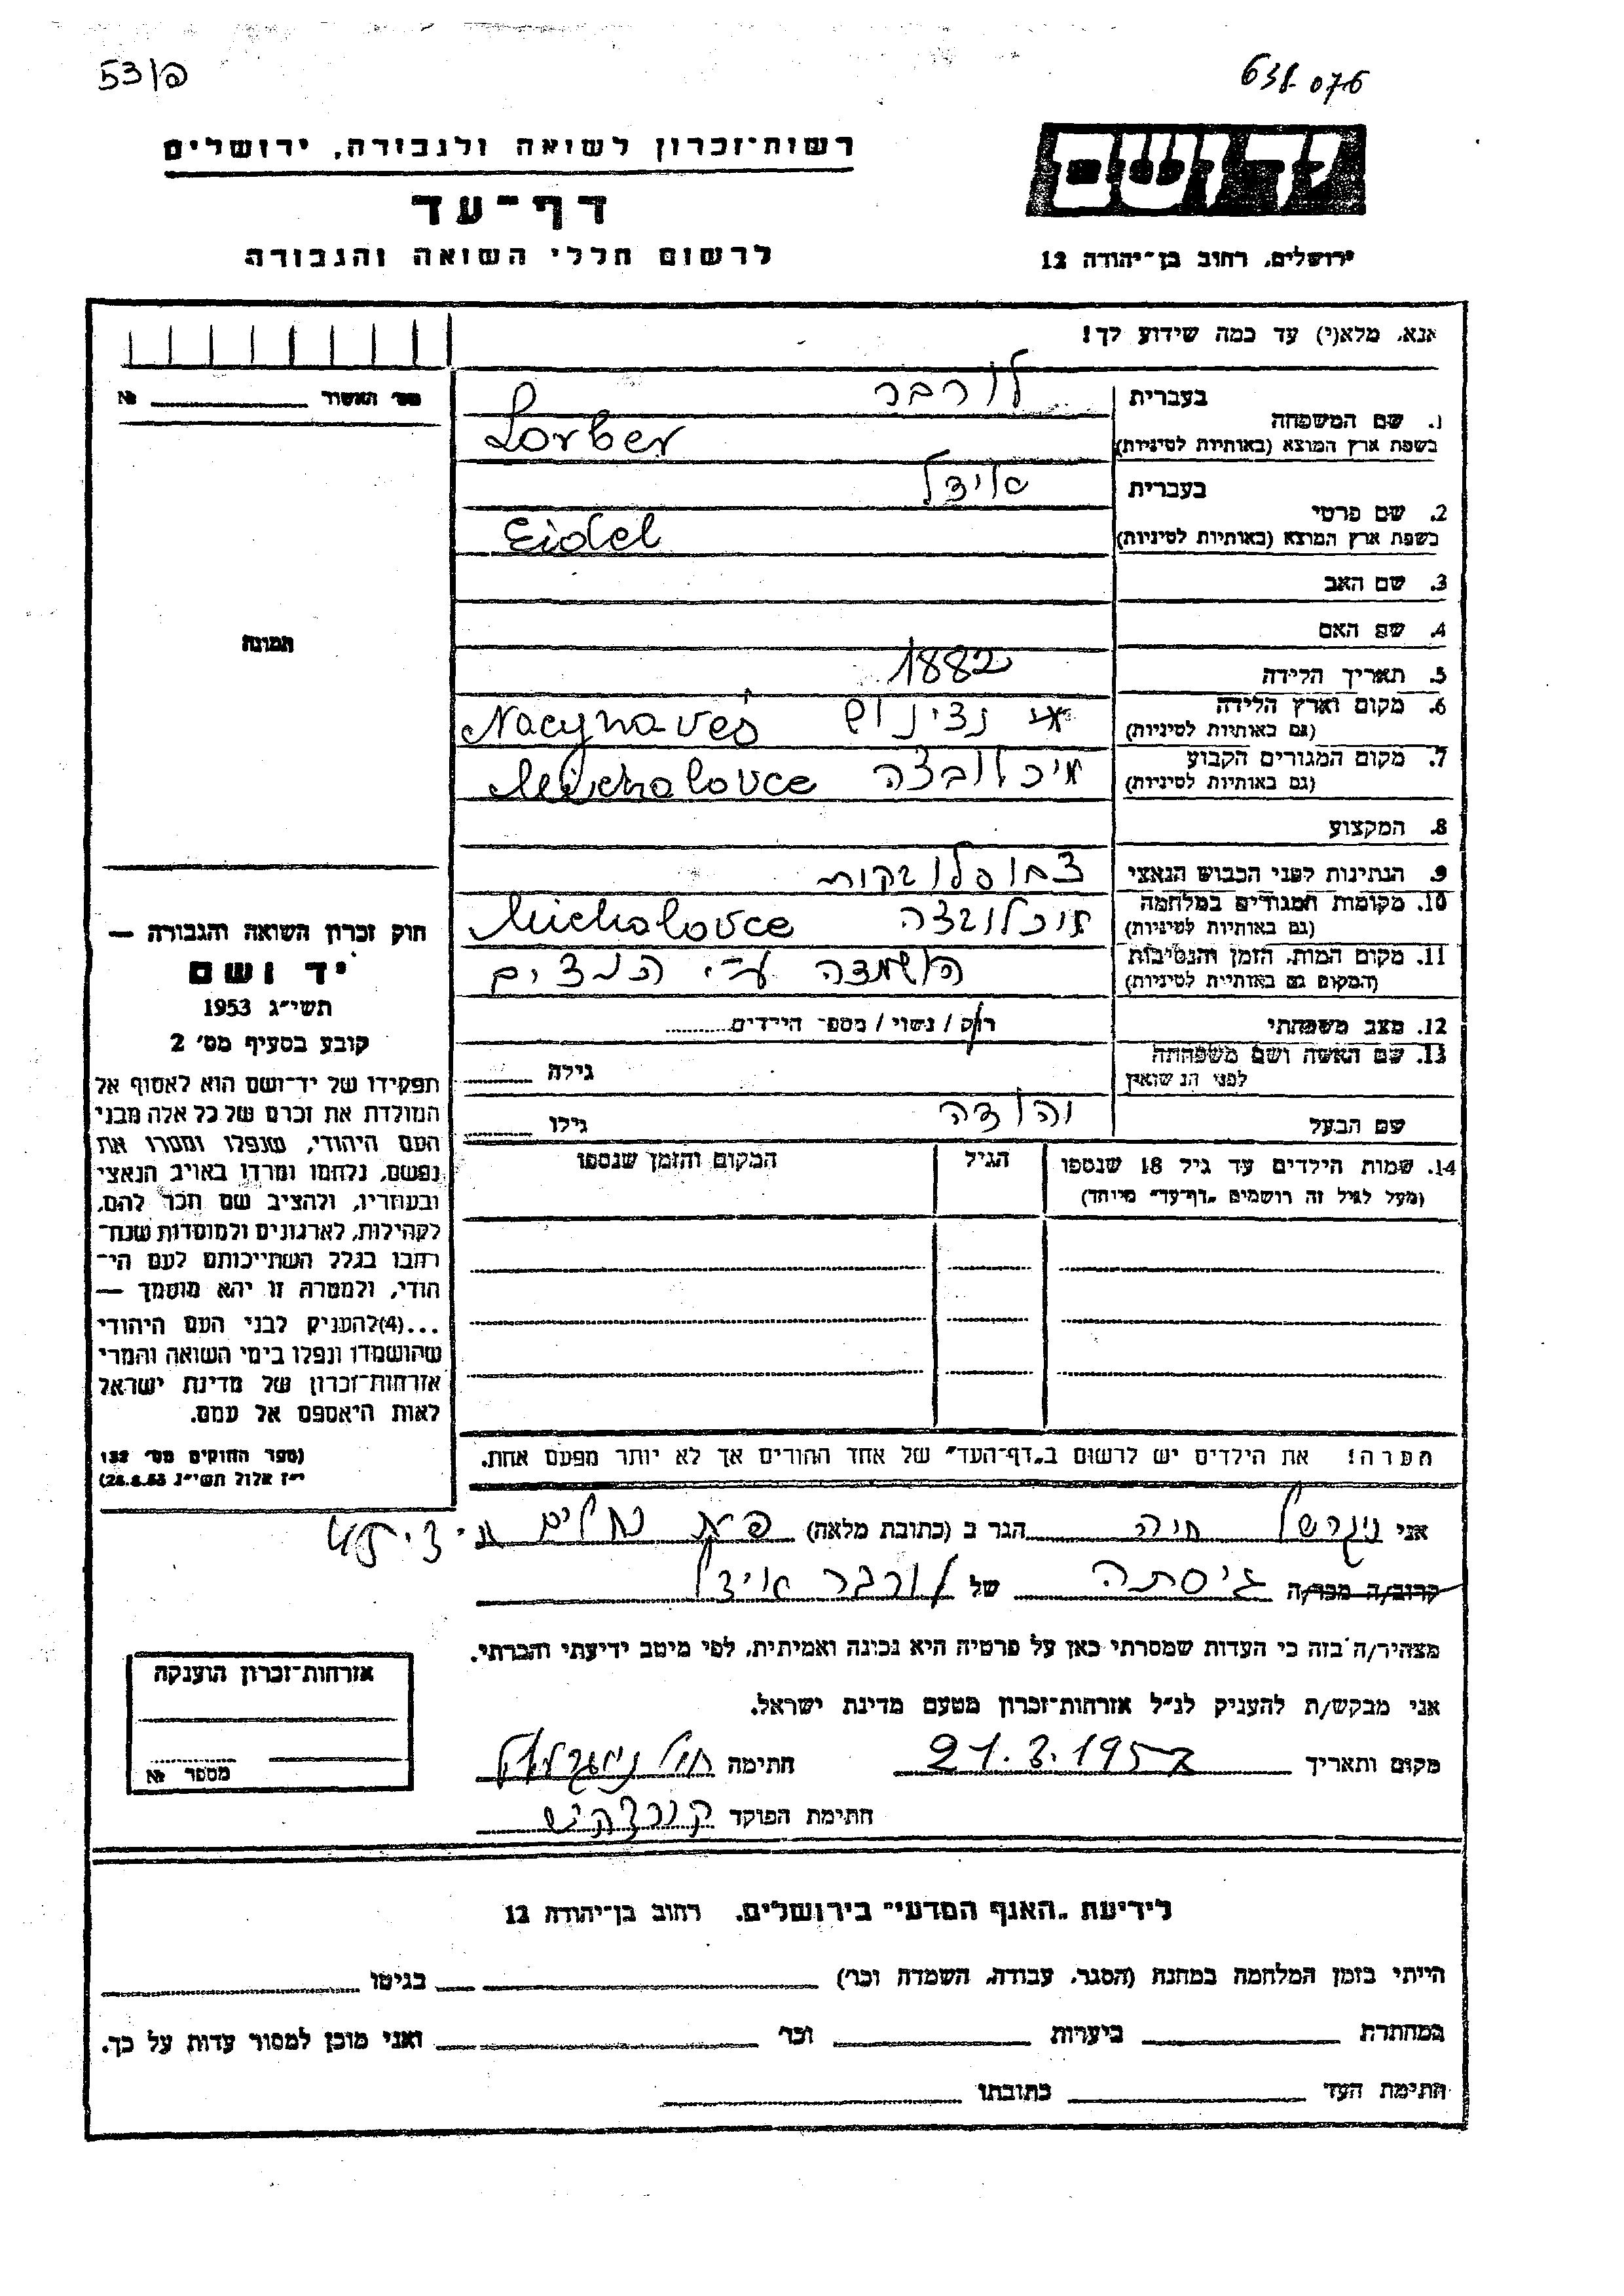 53/פ
638-076
רשות־זכרון לשואה ולגבורה, ירושלים
דף־עד
לרשום חללי השואה והגבורה
יד ושם
ירושלים, רחוב בן־יהודה 12
אנא, מלא(י) עד כמה שידוע לך!
מס׳ האשור №
1. שם המשפחה
בעברית לורבר
בשפת ארץ המוצא (באותיות לטיניות) Lorber
2. שם פרטי
בעברית אידל
בשפת ארץ המוצא (באותיות לטיניות) Eidel
3. שם האב
4. שם האם
5. תאריך הלידה 1882
6. מקום וארץ הלידה
(גם באותיות לטיניות) Nacynaves
7. מקום המגורים הקבוע מיכלובצה
(גם באותיות לטיניות) Michalovce
8. המקצוע
9. הנתינות לפני הכבוש הנאצי
10. מקומות המגורים במלחמה מיכלובצה
(גם באותיות לטיניות) Michalovce
11. מקום המות, הזמן והנסיבות הושמדה ע״י הנאצים
(המקום גם באותיית לטיניות)
12. מצב משפחתי רוק / נשוי / מספ־ הילדים
13. שם האשה ושם משפחתה
לפני הנשואין גילה
שם הבעל יהודה גילו
14. שמות הילדים עד גיל 18 שנספו הגיל המקום והזמן שנספו
(מעל לגיל זה רושמים „דף־עד״ מיוחד)
הערה! את הילדים יש לרשום ב„דף־העד״ של אחד ההורים אך לא יותר מפעם אחת.
תמונה
חוק זכרון השואה והגבורה —
יד ושם
תשי״ג 1953
קובע בסעיף מס׳ 2
תפקידו של יד־ושם הוא לאסוף אל
המולדת את זכרם של כל אלה מבני
העם היהודי, שנפלו ומסרו את
נפשם, נלחמו ומרדו באויב הנאצי
ובעוזריו, ולהציב שם וזכר להם,
לקהילות, לארגונים ולמוסדות שנח־
רבו בגלל השתייכותם לעם הי־
הודי, ולמטרה זו יהא מוסמך —
...(4)להעניק לבני העם היהודי
שהושמדו ונפלו בימי השואה והמרי
אזרחות־זכרון של מדינת ישראל
לאות היאספם אל עמם.
(ספר החוקים מס׳ 132
י״ז אלול תשי״ג 28.8.53)
אני חיה הגר ב (כתובת מלאה)
קרוב/ה מכר/ה גיסתה של לורבר אידל
מצהיר/ה בזה כי העדות שמסרתי כאן על פרטיה היא נכונה ואמיתית, לפי מיטב ידיעתי והכרתי.
אני מבקש/ת להעניק לנ״ל אזרחות־זכרון מטעם מדינת ישראל.
מקום ותאריך 21.3.1957 חתימה
חתימת הפוקד
אזרחות־זכרון הוענקה
מספר №
לידיעת „האגף המדעי״ בירושלים, רחוב בן־יהודה 12
הייתי בזמן המלחמה במחנה (הסגר, עבודה, השמדה וכו׳) בגיטו
במחתרת ביערות וכו׳ ואני מוכן למסור עדות על כך.
חתימת העד כתובתו